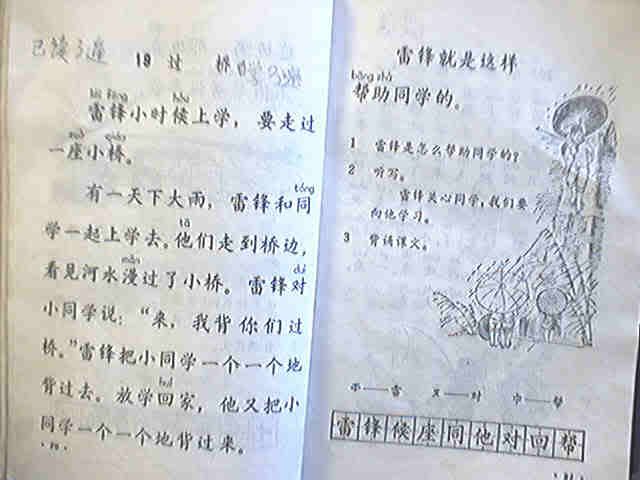 已读3遍
19 过 桥
léi fēng hòu
雷锋小时候上学，要走过
zuò qiáo
一座小桥。
tóng
有一天下大雨，雷锋和同
tā
学一起上学去。他们走到桥边，
màn duì
看见河水漫过了小桥。雷锋对
小同学说：“来，我背你们过
桥。”雷锋把小同学一个一个地
huí
背过去。放学回家，他又把小
同学一个一个地背过来。
雷锋就是这样
bāng zhù
帮助同学的。
1 雷锋是怎么帮助同学的？
2 听写。
雷锋关心同学，我们要
向他学习。
3 背诵课文。
⻗——雷 又——对 巾——帮
雷锋候座同他对回帮